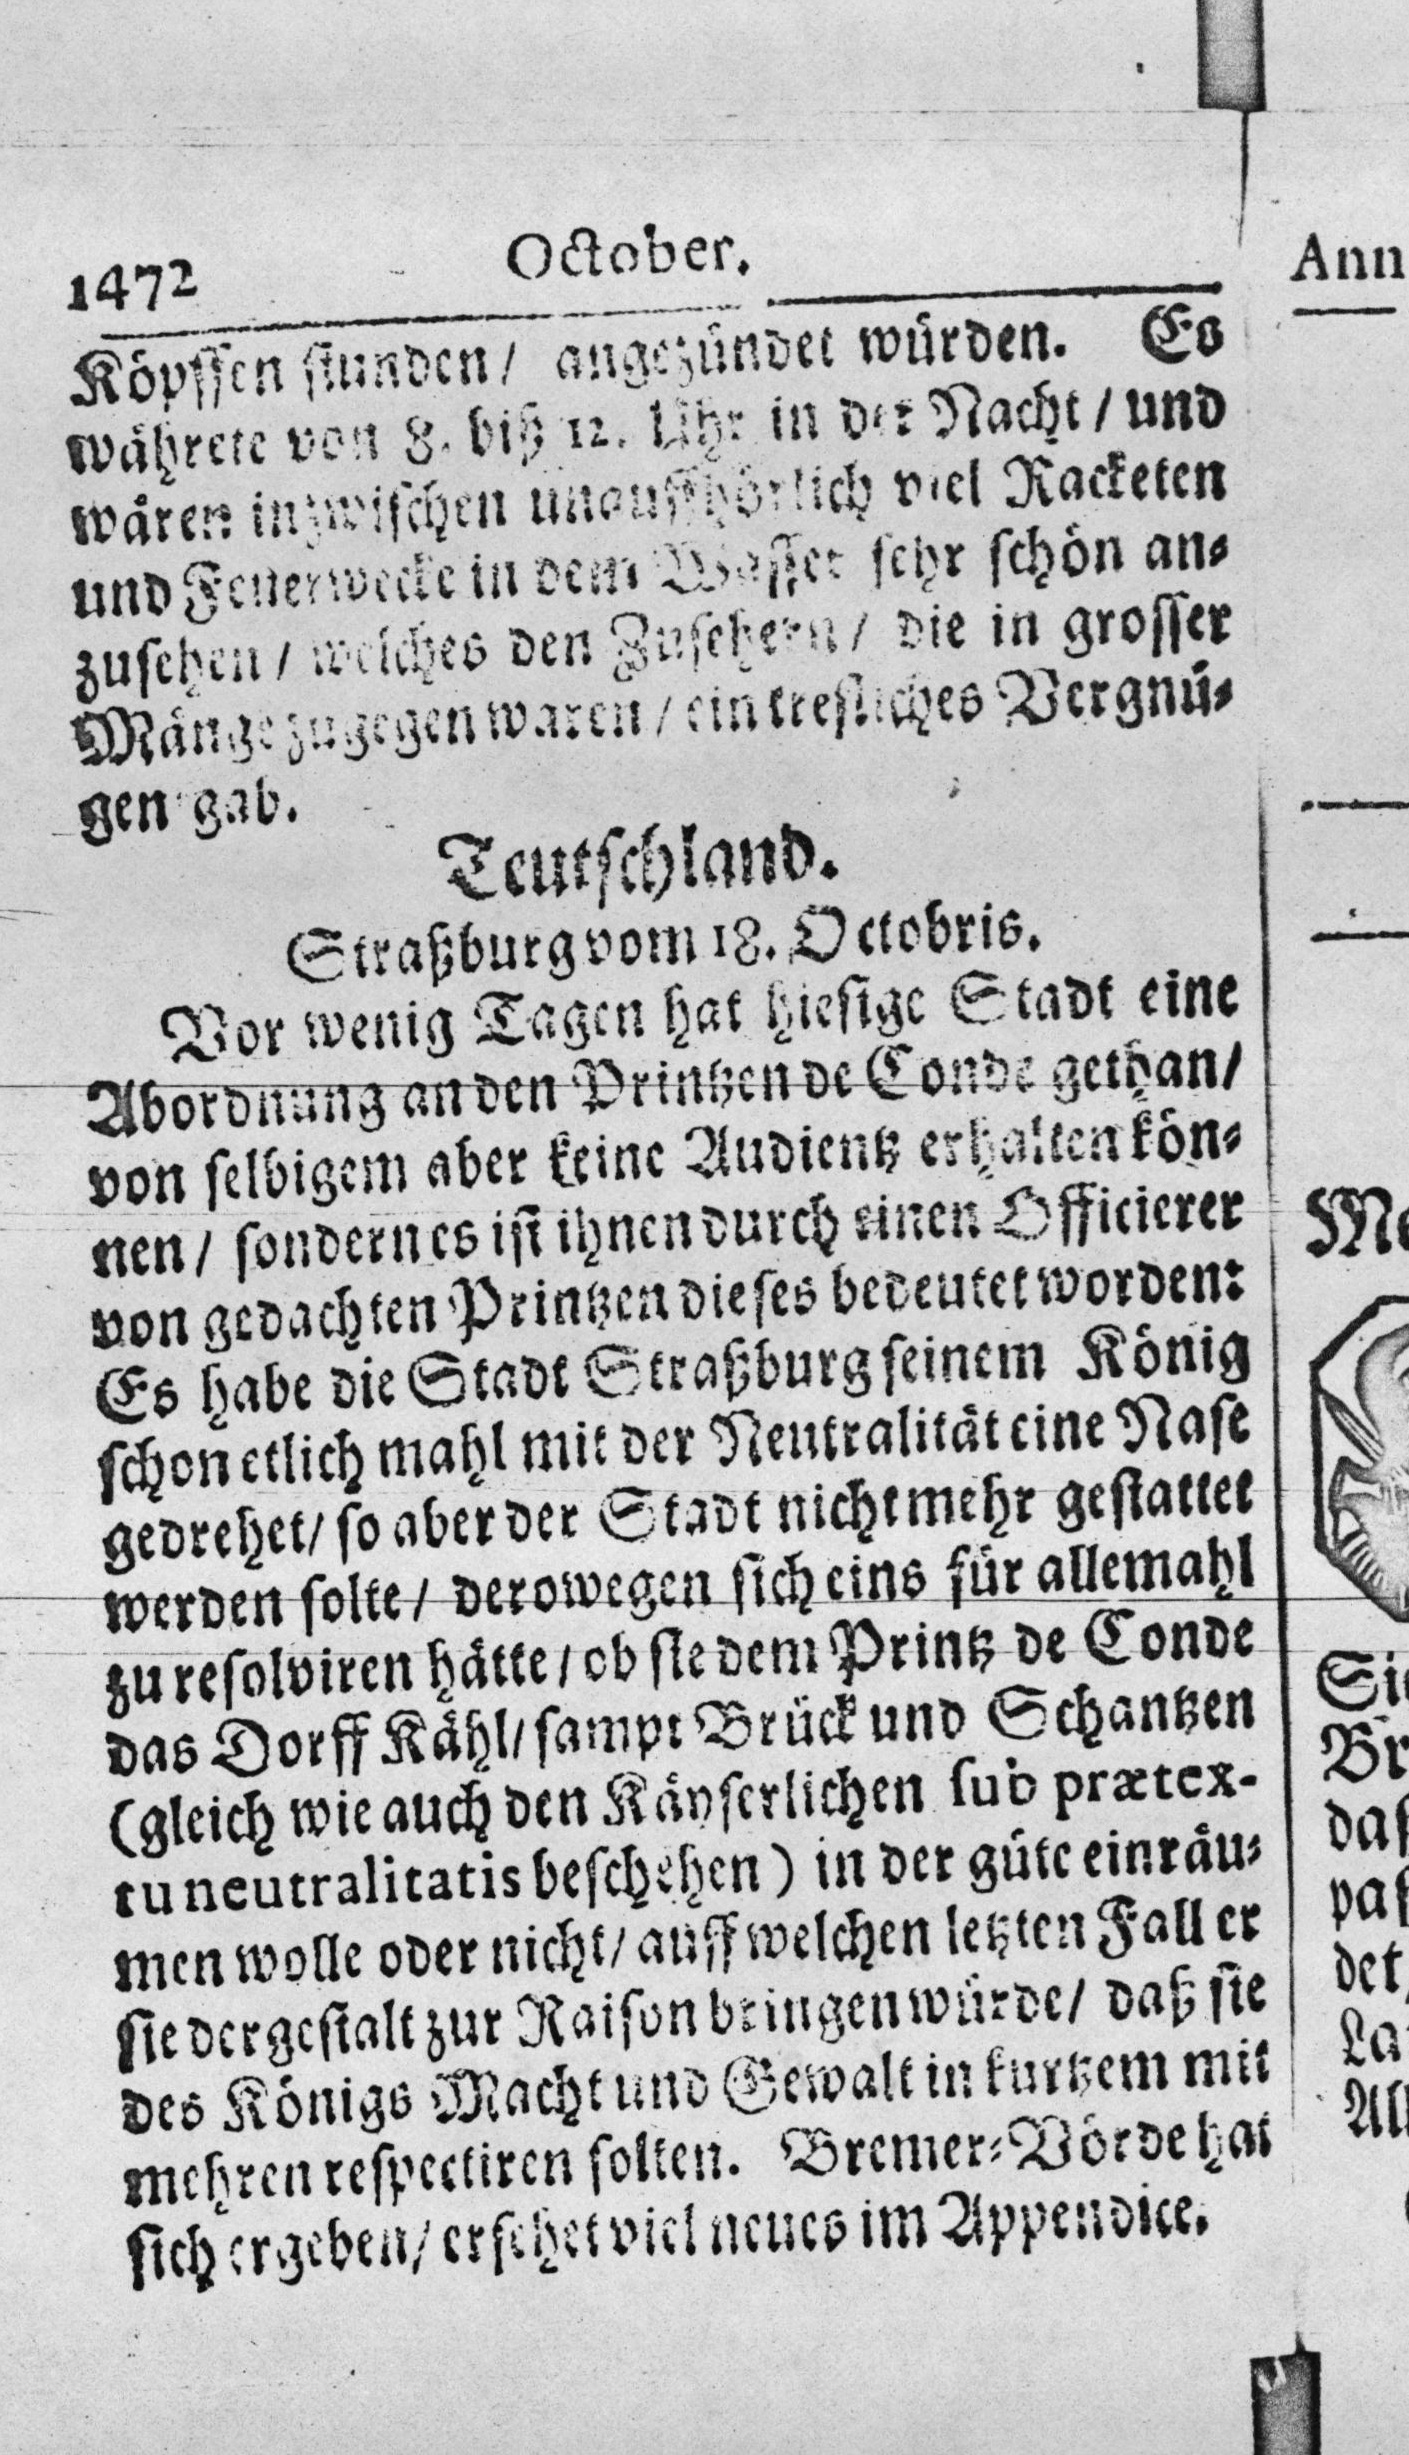 1472 October.
Köpffen stunden / angezündet würden. Es
währete von 8. biß 12. Uhr in der Nacht / und
wären inzwischen unauffhörlich viel Racketen
und Feuerwercke in dem Wasser sehr schön an-
zusehen / welches den Zusehern / die in grosser
Mänge zugegen waren / ein trefliches Vergnü-
gen gab.
Teutschland.
Straßburg vom 18. Octobris.
Vor wenig Tagen hat hiesige Stadt eine
Abordnung an den Printzen de Conde gethan /
von selbigem aber keine Audientz erhalten kön-
nen / sondern es ist ihnen durch einen Officierer
von gedachten Printzen dieses bedeutet worden:
Es habe die Stadt Straßburg seinem König
schon etlich mahl mit der Neutralität eine Nase
gedrehet / so aber der Stadt nicht mehr gestattet
werden solte / derowegen sich eins für allemahl
zu resolviren hätte / ob sie dem Printz de Conde
das Dorff Kähl / sampt Brück und Schantzen
(gleich wie auch den Käyserlichen sub prætex-
tu neutralitatis beschehen) in der güte einräu-
men wolle oder nicht / auff welchen letzten Fall er
sie dergestalt zur Raison bringen würde / daß sie
des Königs Macht und Gewalt in kurtzem mit
mehren respectiren solten. Bremer-Vörde hat
sich ergeben / ersehet viel neues im Appendice.
Ann
Sie
Br
det
La
All